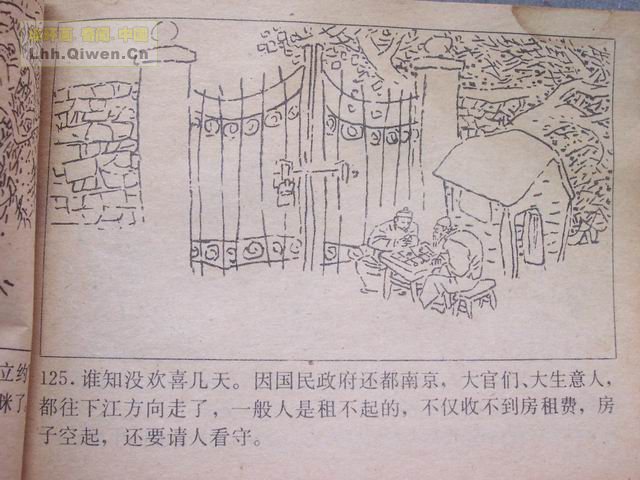 连环画·奇闻·中国
Lhh.Qiwen.Cn
立约
咪了
125. 谁知没欢喜几天。因国民政府还都南京，大官们、大生意人，
都往下江方向走了，一般人是租不起的，不仅收不到房租费，房
子空起，还要请人看守。